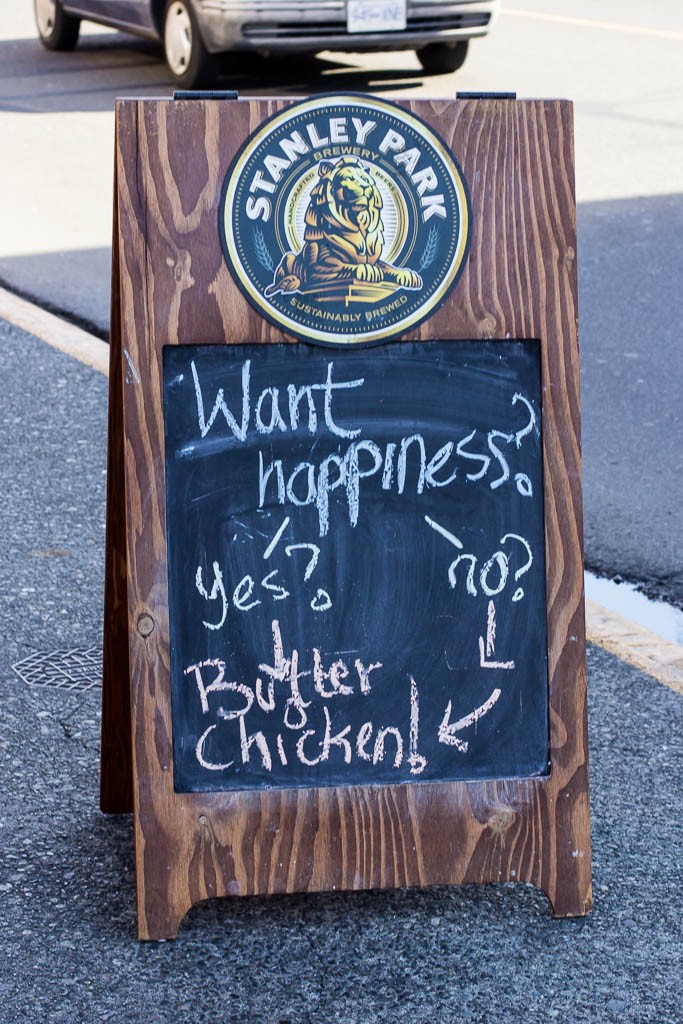 STANLEY PARK
BREWERY
HANDCRAFTED BEERS
SUSTAINABLY BREWED
Want
happiness?
yes? no?
Butter
Chicken!